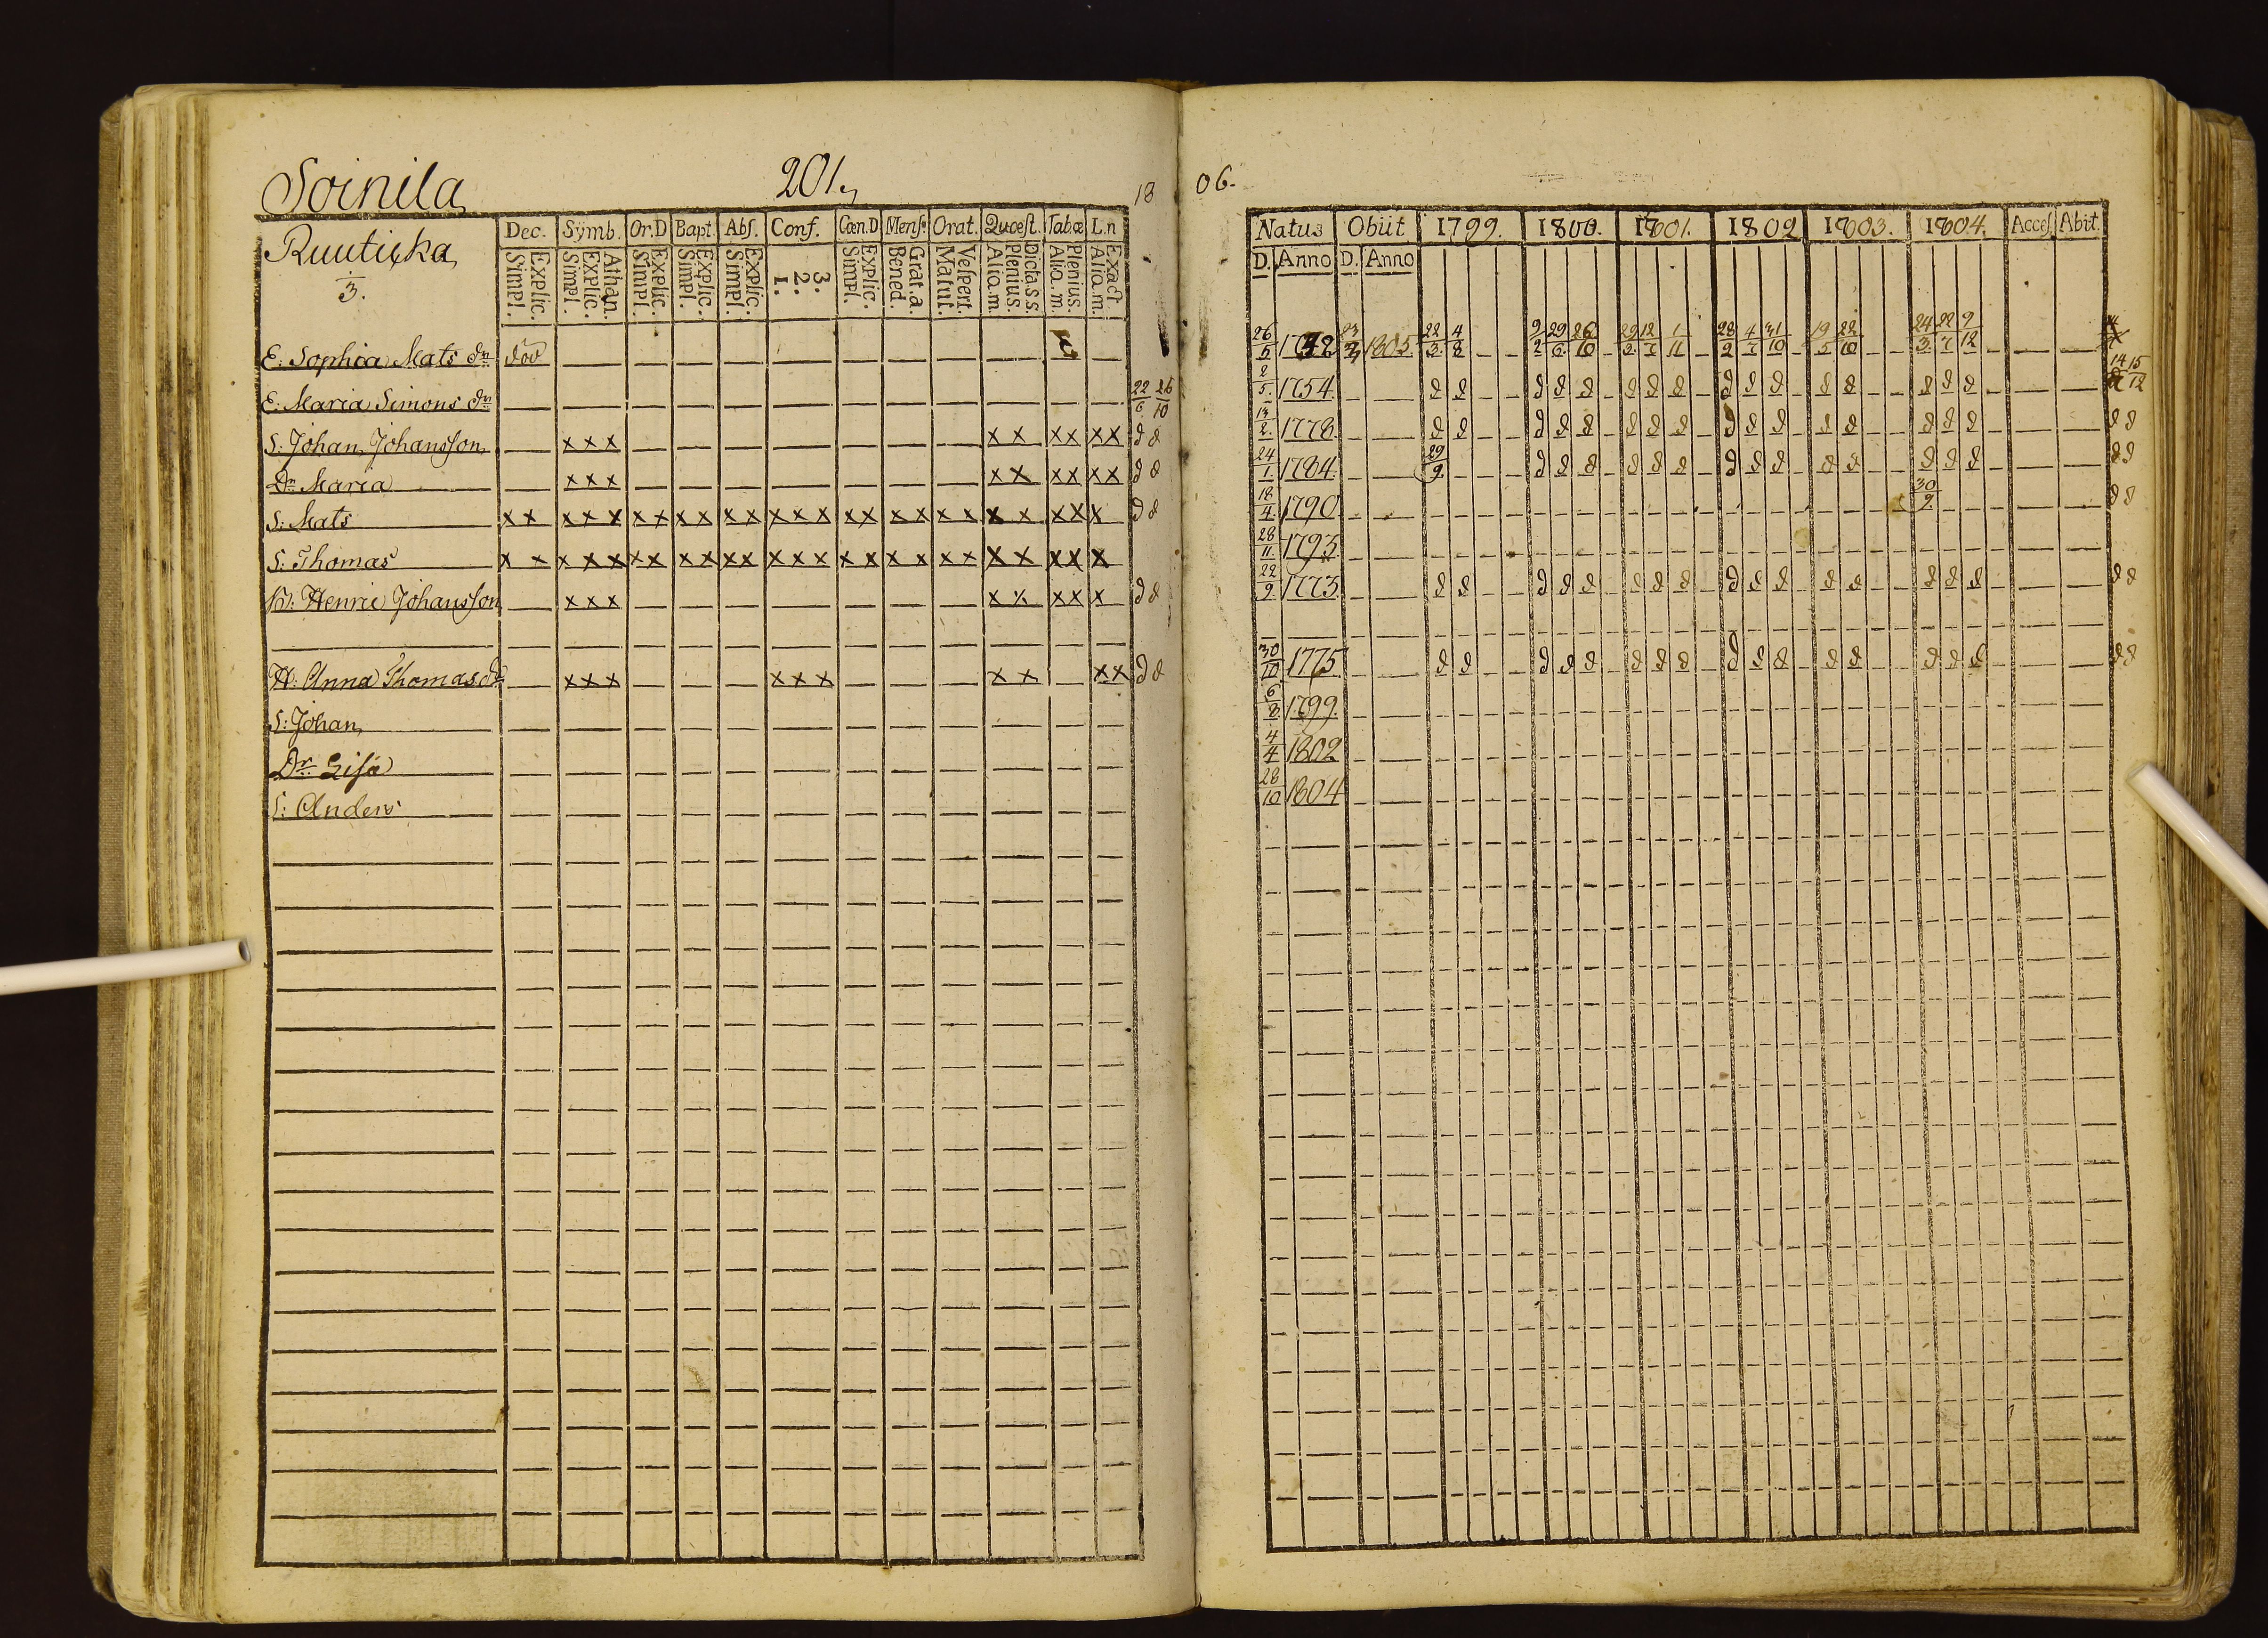 Soinila 201.
18 06.
Ruuticka
3.
Dec. Symb. Or.D Bapt. Abs. Conf. Cœn.D Mens. Orat. Quæst. Tabæ L.n
Simpl. Explic. Simpl. Explic. Athan. Simpl. Explic. Simpl. Explic. Simpl. Explic. 1. 2. 3. Simpl. Explic. Bened. Grat.a. Matut. Vespert. Aliq.m. Plenius. Dicta S.S. Aliq.m. Plenius. Aliq.m. Exact
Natus Obiit 1799. 1800. 1801. 1802 1803. 1804. Acces. Abiit.
D. Anno D. Anno
E: Sophia Mats dr döv 26/5 1805. 22/3 4/8 2/2 29/6 26/10 28/2 4/7 31/10 19/5 22/10 24/3 22/7 9/12
E: Maria Simons dr 22/6 26/10 2/5 1754 d d d d d d d d d d d d d d d d 14 15/12
S: Johan Johansson x x x x x x x x x d d 13/2 1778 d d d d d d d d d d d d d d d d d d
Dr Maria x x x x x x x x x d d 24/1 1784 29/9 d d d d d d d d d d d d d d d d
S: Mats x x x x x x x x x x x x x x x x x x x x x x x x x x d d 18/4 1790 30/9 d d
S: Thomas x x x x x x x x x x x x x x x x x x x x x x x x x x 28/11 1793
Henric Johansson x x x x x x x x d d 22/9 1773 d d d d d d d d d d d d d d d d d d
H: Anna Thomas dr x x x x x x x x x x d d 30/10 1775 d d d d d d d d d d d d d d d d d d
S: Johan 6/8 1799
Dr Lisa 4/4 1802
S: Anders 28/10 1804